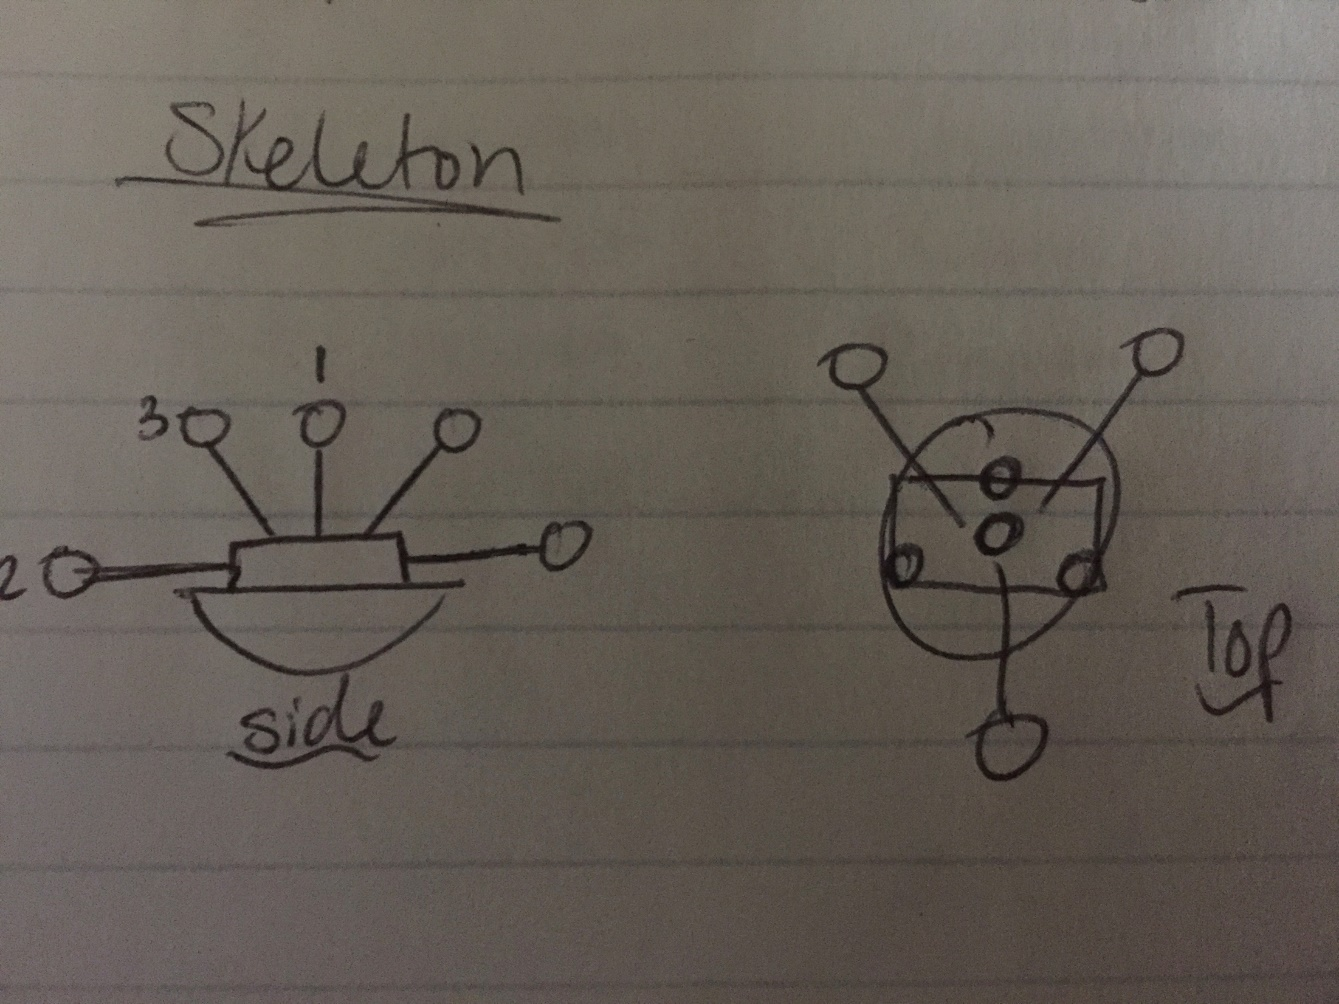 Skeleton
1
3
2
side
Top